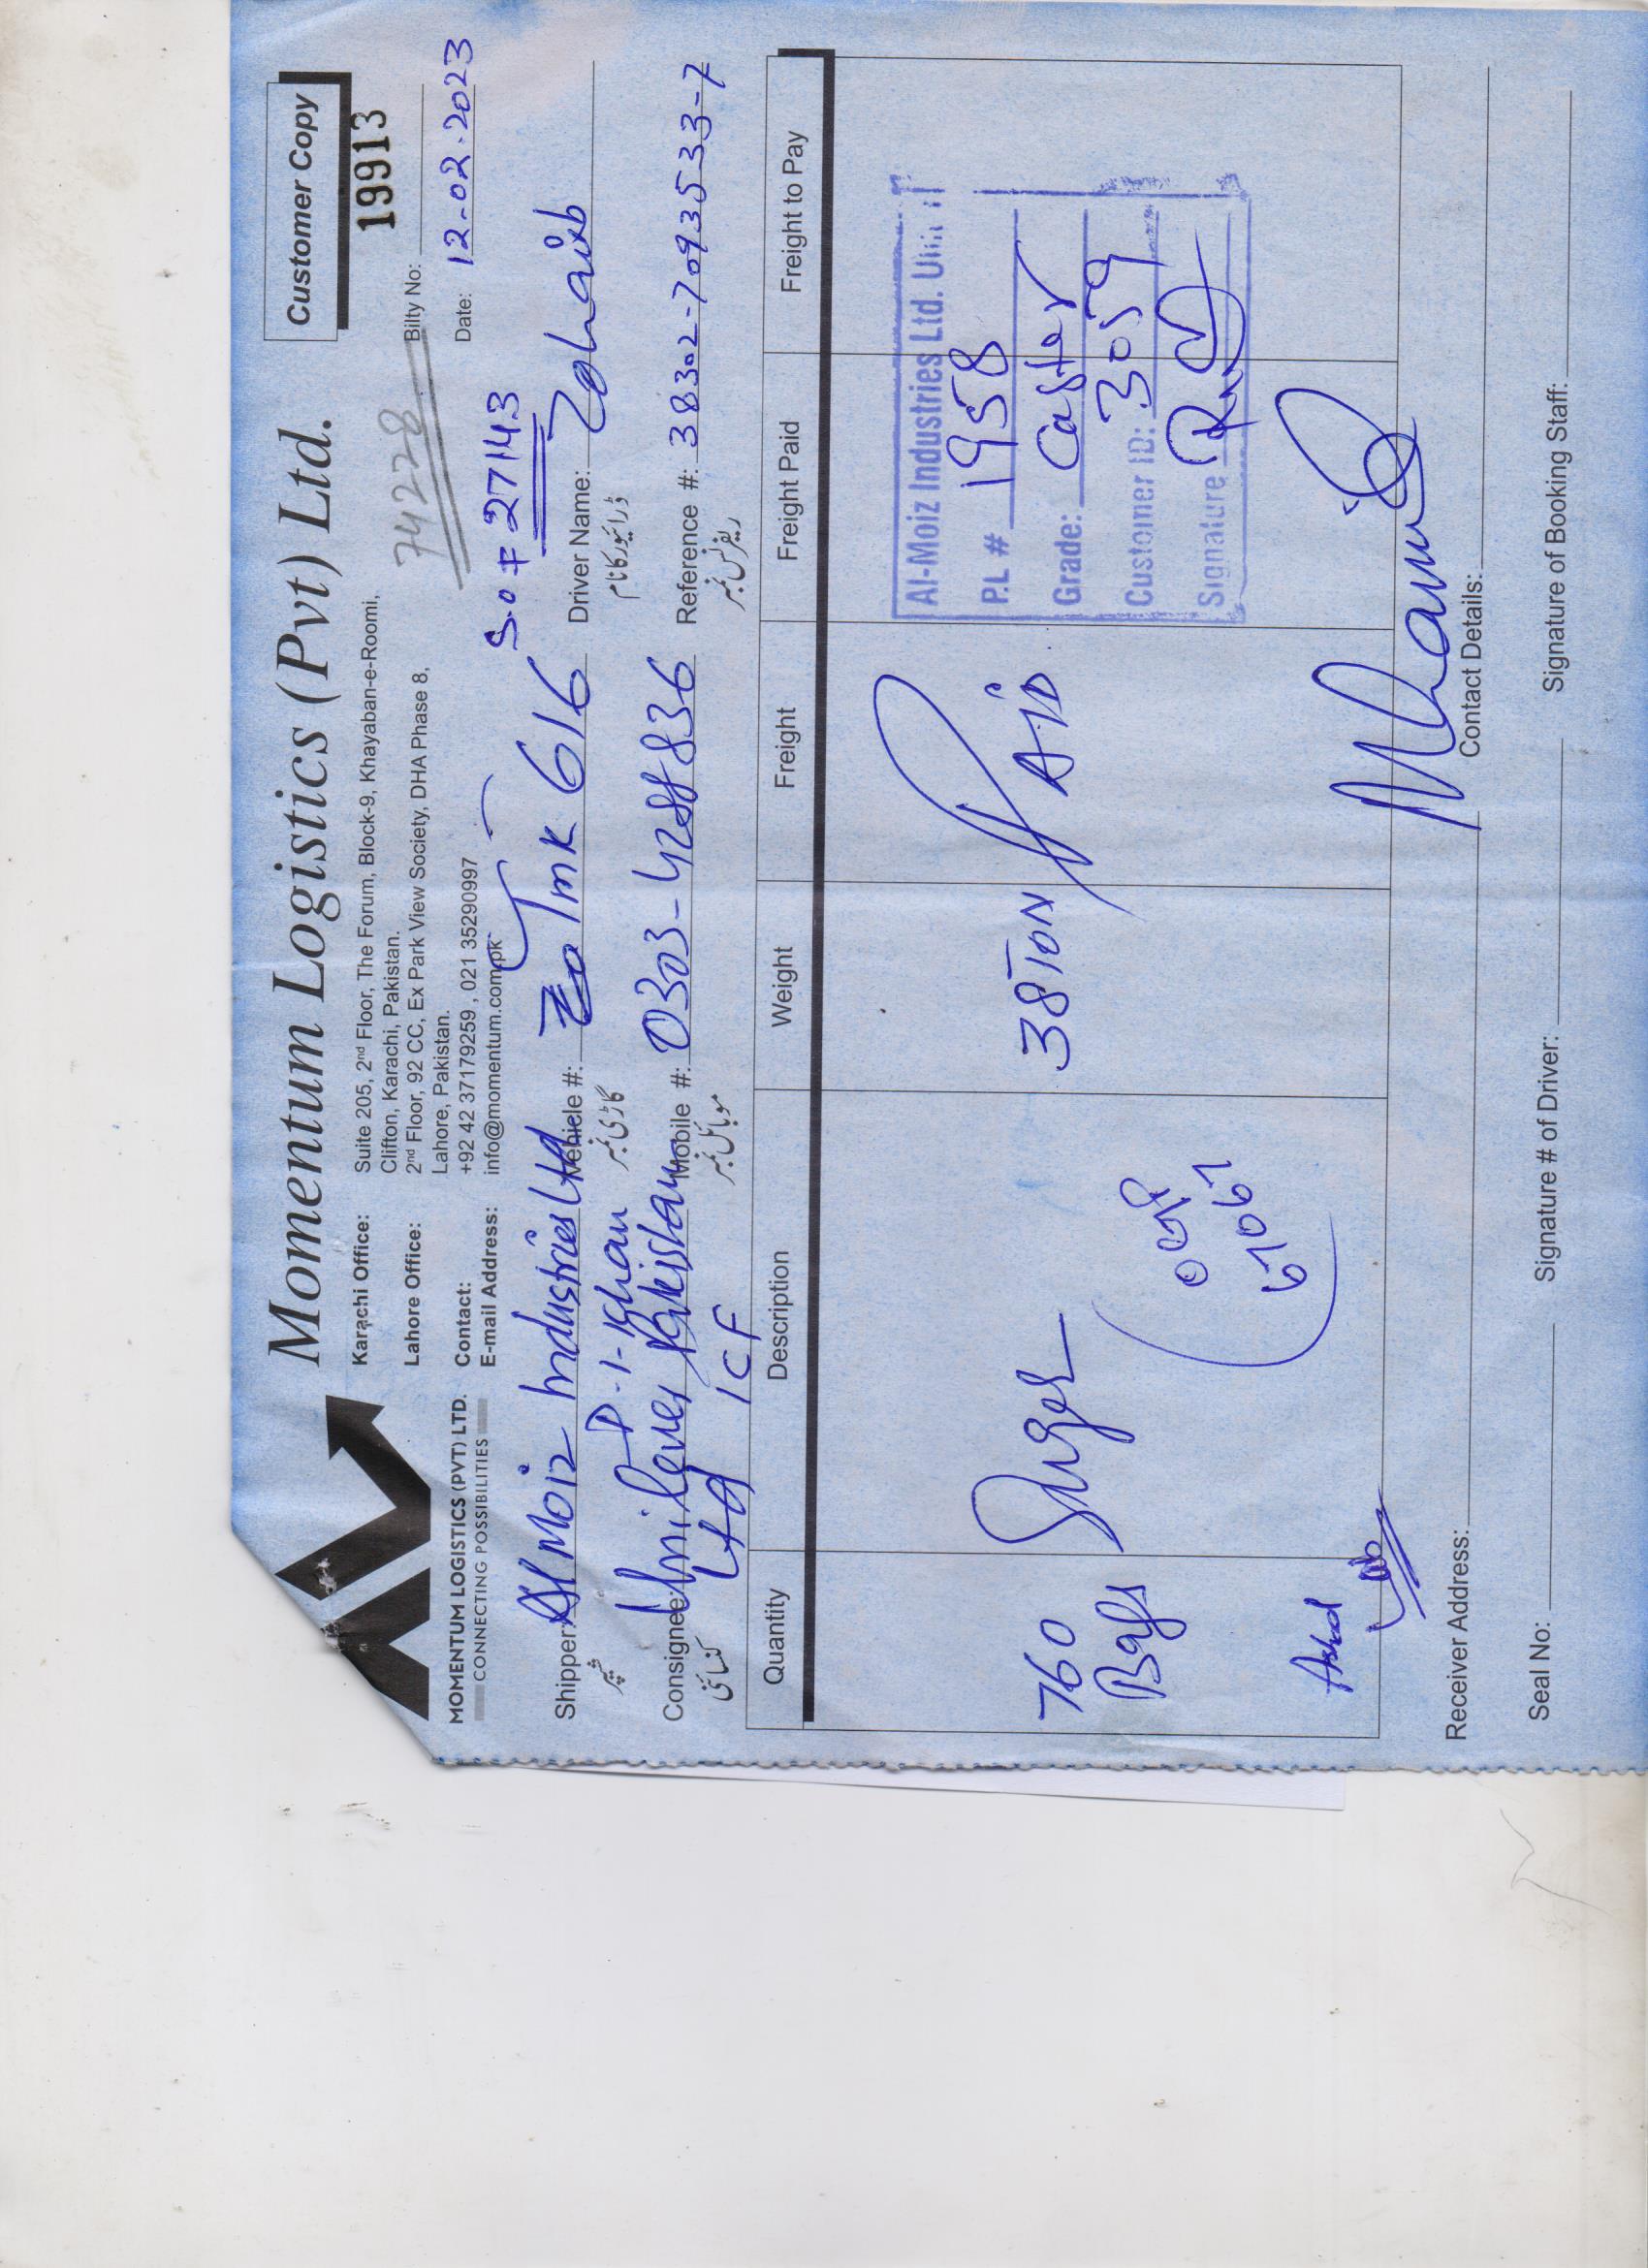 Momentum Logistics (Pvt) Ltd.
Customer Copy
19913
MOMENTUM LOGISTICS (PVT) LTD.
CONNECTING POSSIBILITIES
Karachi Office: Suite 205, 2nd Floor, The Forum, Block-9, Khayaban-e-Roomi,
Clifton, Karachi, Pakistan.
Lahore Office: 2nd Floor, 92 CC, Ex Park View Society, DHA Phase 8,
Lahore, Pakistan.
Contact: +92 42 37179259 , 021 35290997
E-mail Address: info@momentum.com.pk
74228
Bilty No:
Date: 12-02-2023
S.o # 27143
Shipper: Al Moiz Industries Ltd
شپر
D-I-Khan
Vehicle #: TMK 616
گاڑی نمبر
Driver Name: Zohaib
ڈرائیور کا نام
Consignee: Unilever Pakistan
Ltd ICF
کنسائنی
Mobile #: 0303-4288836
موبائل نمبر
Reference #: 38302-7093533-7
ریفرنس نمبر
Quantity Description Weight Freight Freight Paid Freight to Pay
760
Bags
Suger
38 TON
PAID
Al-Moiz Industries Ltd. Unit
P.L # 1958
Grade: Caster
Customer ID: 3059
Signature
Receiver Address: Contact Details:
Seal No: Signature # of Driver: Signature of Booking Staff: